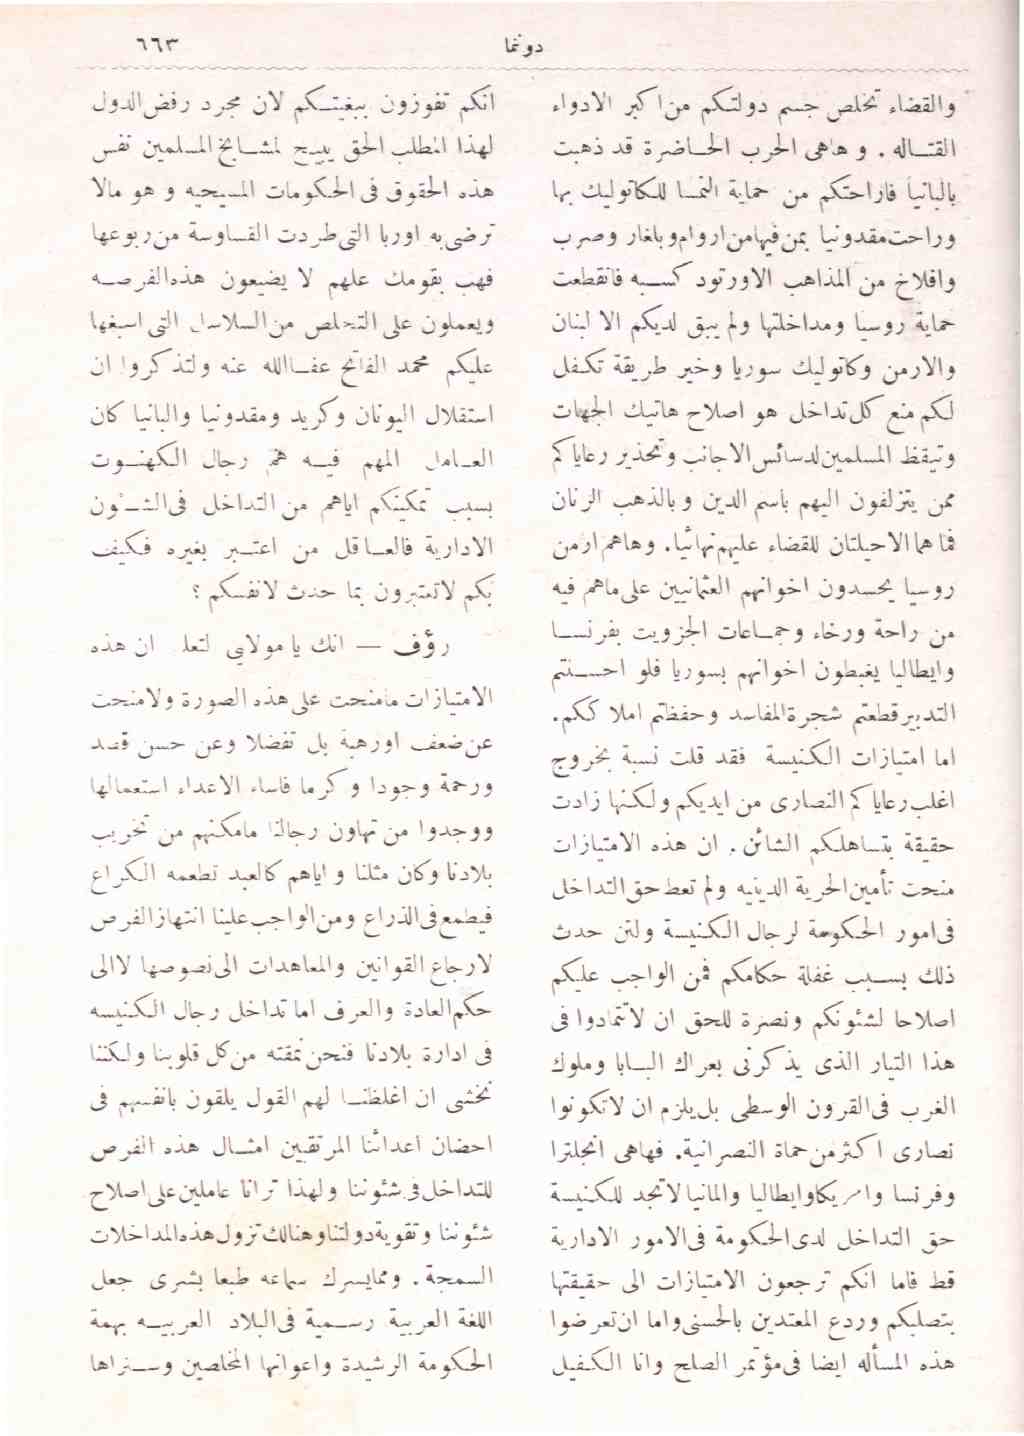 دونما
٦٦٣
والقضاء تخلص جسم دولتكم من اكبر الادواء
القتاله . وهاهى الحرب الحاضرة قد ذهبت
بالبانيا فاراحتكم من حماية النمسا للكاتوليك بها
وراحت مقدونيا بمن فيها من اروام وبلغار وصرب
وافلاخ من المذاهب الاورتودكسيه فانقطعت
حماية روسيا ومداخلتها ولم يبق لديكم الا لبنان
والارمن وكاتوليك سوريا وخير طريقة تكفل
لكم منع كل تداخل هو اصلاح هاتيك الجهات
وتيقظ المسلمين لدسائس الاجانب وتحذير رعاياكم
ممن يتزلفون اليهم باسم الدين وبالذهب الرنان
فما هما الاحيلتان للقضاء عليهم نهائيا. وهاهم ارمن
روسيا يحسدون اخوانهم العثمانيين على ماهم فيه
من راحة ورخاء وجماعات الجزويت بفرنسا
وايطاليا يغبطون اخوانهم بسوريا فلو احسنتم
التدبير قطعتم شجرة المفاسد وحفظتم املاككم.
اما امتيازات الكنيسة فقد قلت نسبة بخروج
اغلب رعاياكم النصارى من ايديكم ولكنها زادت
حقيقة بتساهلكم الشائن. ان هذه الامتيازات
منحت تأمين الحرية الدينيه ولم تعط حق التداخل
فى امور الحكومة لرجال الكنيسة ولئن حدث
ذلك بسبب غفلة حكامكم فمن الواجب عليكم
اصلاحا لشئونكم ونصرة للحق ان لاتتمادوا فى
هذا التيار الذى يذكرنى بعراك البابا وملوك
الغرب فى القرون الوسطى بل يلزم ان لاتكونوا
نصارى اكثر من حماة النصرانية. فهاهى انجلترا
وفرنسا وامريكا وايطاليا والمانيا لاتجد للكنيسة
حق التداخل لدى الحكومة فى الامور الادارية
قط فاما انكم ترجعون الامتيازات الى حقيقتها
بتصلبكم وردع المعتدين بالحسنى واما ان تعرضوا
هذه المسأله ايضا فى مؤتمر الصلح وانا الكفيل
انكم تفوزون ببغيتكم لان مجرد رفض الدول
لهذا المطلب الحق يبيح لمشايخ المسلمين نفس
هذه الحقوق فى الحكومات المسيحيه وهو مالا
ترضى به اوربا التى طردت القساوسة من ربوعها
فهب بقومك علهم لا يضيعون هذه الفرصه
ويعملون على التخلص من السلاسل التى اسبغها
عليكم محمد الفاتح عفا الله عنه ولتذكروا ان
استقلال اليونان وكريد ومقدونيا والبانيا كان
العامل المهم فيه هم رجال الكهنوت
بسبب تمكينكم اياهم من التداخل فى الشئون
الادارية فالعاقل من اعتبر بغيره فكيف
بكم لاتعتبرون بما حدث لانفسكم ؟
رؤف — انك يا مولاى لتعلم ان هذه
الامتيازات مامنحت على هذه الصورة ولامنحت
عن ضعف اورهبة بل تفضلا وعن حسن قصد
ورحمة وجودا وكرما فاساء الاعداء استعمالها
ووجدوا من تهاون رجالنا مامكنهم من تخريب
بلادنا وكان مثلنا واياهم كالعبد تطعمه الكراع
فيطمع فى الذراع ومن الواجب علينا انتهاز الفرص
لارجاع القوانين والمعاهدات الى نصوصها لاالى
حكم العادة والعرف اما تداخل رجال الكنيسه
فى ادارة بلادنا فنحن نمقته من كل قلوبنا ولكننا
نخشى ان اغلظنا لهم القول يلقون بانفسهم فى
احضان اعدائنا المرتقبين امثال هذه الفرص
للتداخل فى شئوننا ولهذا ترانا عاملين على اصلاح
شئوننا وتقوية دولتنا وهنالك تزول هذه المداخلات
السمجة. ومما يسرك سماعه طبعا بشرى جعل
اللغة العربية رسمية فى البلاد العربيه بهمة
الحكومة الرشيدة واعوانها المخلصين وستراها